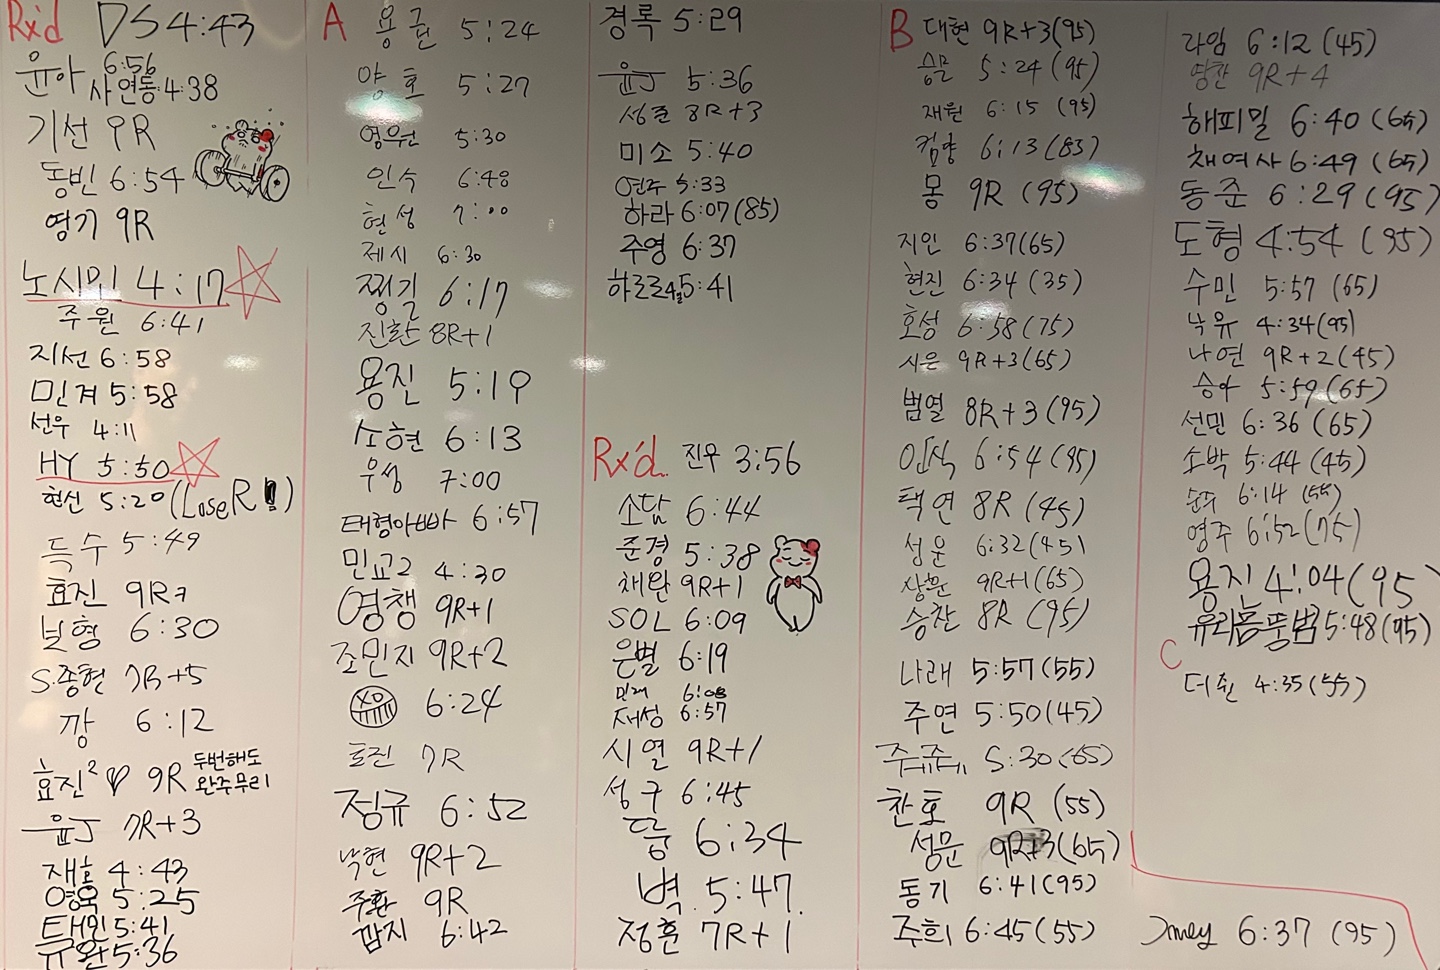 Rx'd DS 4:43
윤아 6:56
사연동 4:38
기선 9R
동빈 6:54
영기 9R
노시미 4:17
주원 6:41
지선 6:58
민겨 5:58
선우 4:11
HY 5:50
현신 5:20 (LoseR!)
득수 5:49
효진 9R
보형 6:30
S.종현 7R+5
깡 6:12
효진² ♡ 9R 두번해도 완주무리
윤J 7R+3
재호 4:43
영욱 5:25
태민 5:41
규완 5:36
A 용근 5:24
양호 5:27
영우 5:30
인수 6:48
현성 7:00
제시 6:30
찡길 6:17
진환 8R+1
용진 5:19
소현 6:13
우성 7:00
태형아빠 6:57
민교2 4:30
영챙 9R+1
조민지 9R+2
6:24
호진 7R
정규 6:52
낙현 9R+2
주환 9R
깜지 6:42
경록 5:29
윤J 5:36
성준 8R+3
미소 5:40
연주 5:33
하라 6:07(85)
주영 6:37
하르르 5:41
Rx'd. 진우 3:56
소담 6:44
준경 5:38
채완 9R+1
SOL 6:09
은별 6:19
민재 6:08
재성 6:57
시열 9R+1
성구 6:45
뚱 6:34
벽 5:47
정훈 7R+1
B 대현 9R+3(95)
승문 5:24 (95)
재원 6:15 (95)
컴향 6:13(83)
몽 9R (95)
지인 6:37(65)
현진 6:34 (35)
호성 6:58(75)
시은 9R+3(65)
범열 8R+3(95)
인식 6:54(95)
택연 8R (45)
성운 6:32(45)
상훈 9R+1(65)
승찬 8R (95)
나래 5:57(55)
주연 5:50(45)
5:30 (65)
찬호 9R (55)
성문 9R+3(65)
동기 6:41(95)
주희 6:45(55)
라임 6:12 (45)
영찬 9R+4
해피밀 6:40 (65)
채여사 6:49 (65)
동준 6:29 (95)
도형 4:54 (95)
수민 5:57 (65)
낙유 4:34(95)
나연 9R+2(45)
승아 5:59(65)
선민 6:36 (65)
소박 5:44(45)
순주 6:14 (55)
영주 6:52(75)
용진 4:04(95)
유리몸뚱범 5:48(95)
C
더췬 4:35(55)
Jmey 6:37 (95)